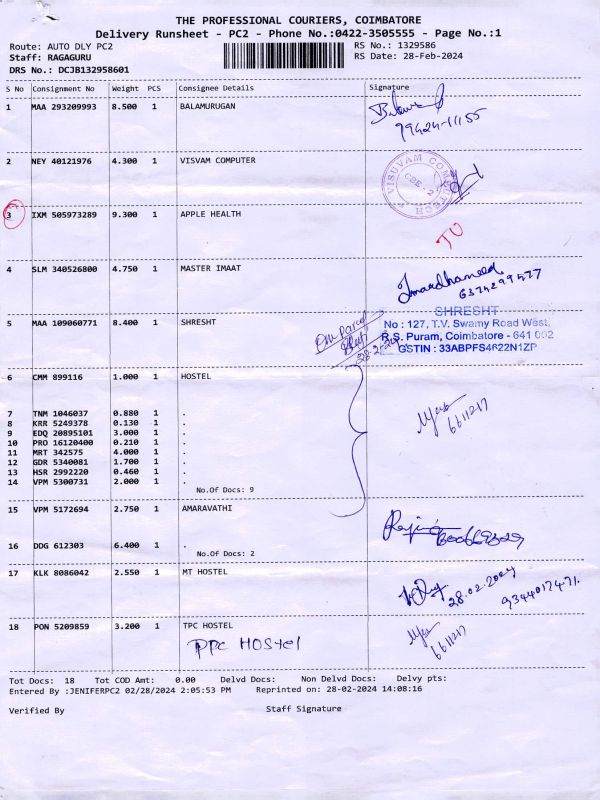 THE PROFESSIONAL COURIERS, COIMBATORE
Delivery Runsheet - PC2 - Phone No.:0422-3505555 - Page No.:1
Route: AUTO DLY PC2 RS No.: 1329586
Staff: RAGAGURU RS Date: 28-Feb-2024
DRS No.: DCJB132958601
S No Consignment No Weight PCS Consignee Details Signature
1 MAA 293209993 8.500 1 BALAMURUGAN
99424-11155
2 NEY 40121976 4.300 1 VISVAM COMPUTER
VISUVAM COMPUTECH
CBE - 2
3 IXM 505973289 9.300 1 APPLE HEALTH
TU
4 SLM 340526800 4.750 1 MASTER IMAAT
6374299577
5 MAA 109060771 8.400 1 SHRESHT
SHRESHT
No : 127, T.V. Swamy Road West,
R.S. Puram, Coimbatore - 641 002
GSTIN : 33ABPFS4622N1ZP
6 CMM 899116 1.000 1 HOSTEL
7 TNM 1046037 0.880 1 .
8 KRR 5249378 0.130 1 .
9 EDQ 20895101 3.000 1 .
10 PRO 16120400 0.210 1 .
11 MRT 342575 4.000 1 .
12 GDR 5340081 1.700 1 .
13 HSR 2992220 0.460 1 .
14 VPM 5300731 2.000 1 .
No.Of Docs: 9
6611217
15 VPM 5172694 2.750 1 AMARAVATHI
16 DDG 612303 6.400 1 .
No.Of Docs: 2
17 KLK 8086042 2.550 1 MT HOSTEL
28.02.2024
9344017471.
18 PON 5209859 3.200 1 TPC HOSTEL
PPC HOSTEL
6611217
Tot Docs: 18 Tot COD Amt: 0.00 Delvd Docs: Non Delvd Docs: Delvy pts:
Entered By :JENIFERPC2 02/28/2024 2:05:53 PM Reprinted on: 28-02-2024 14:08:16
Verified By Staff Signature